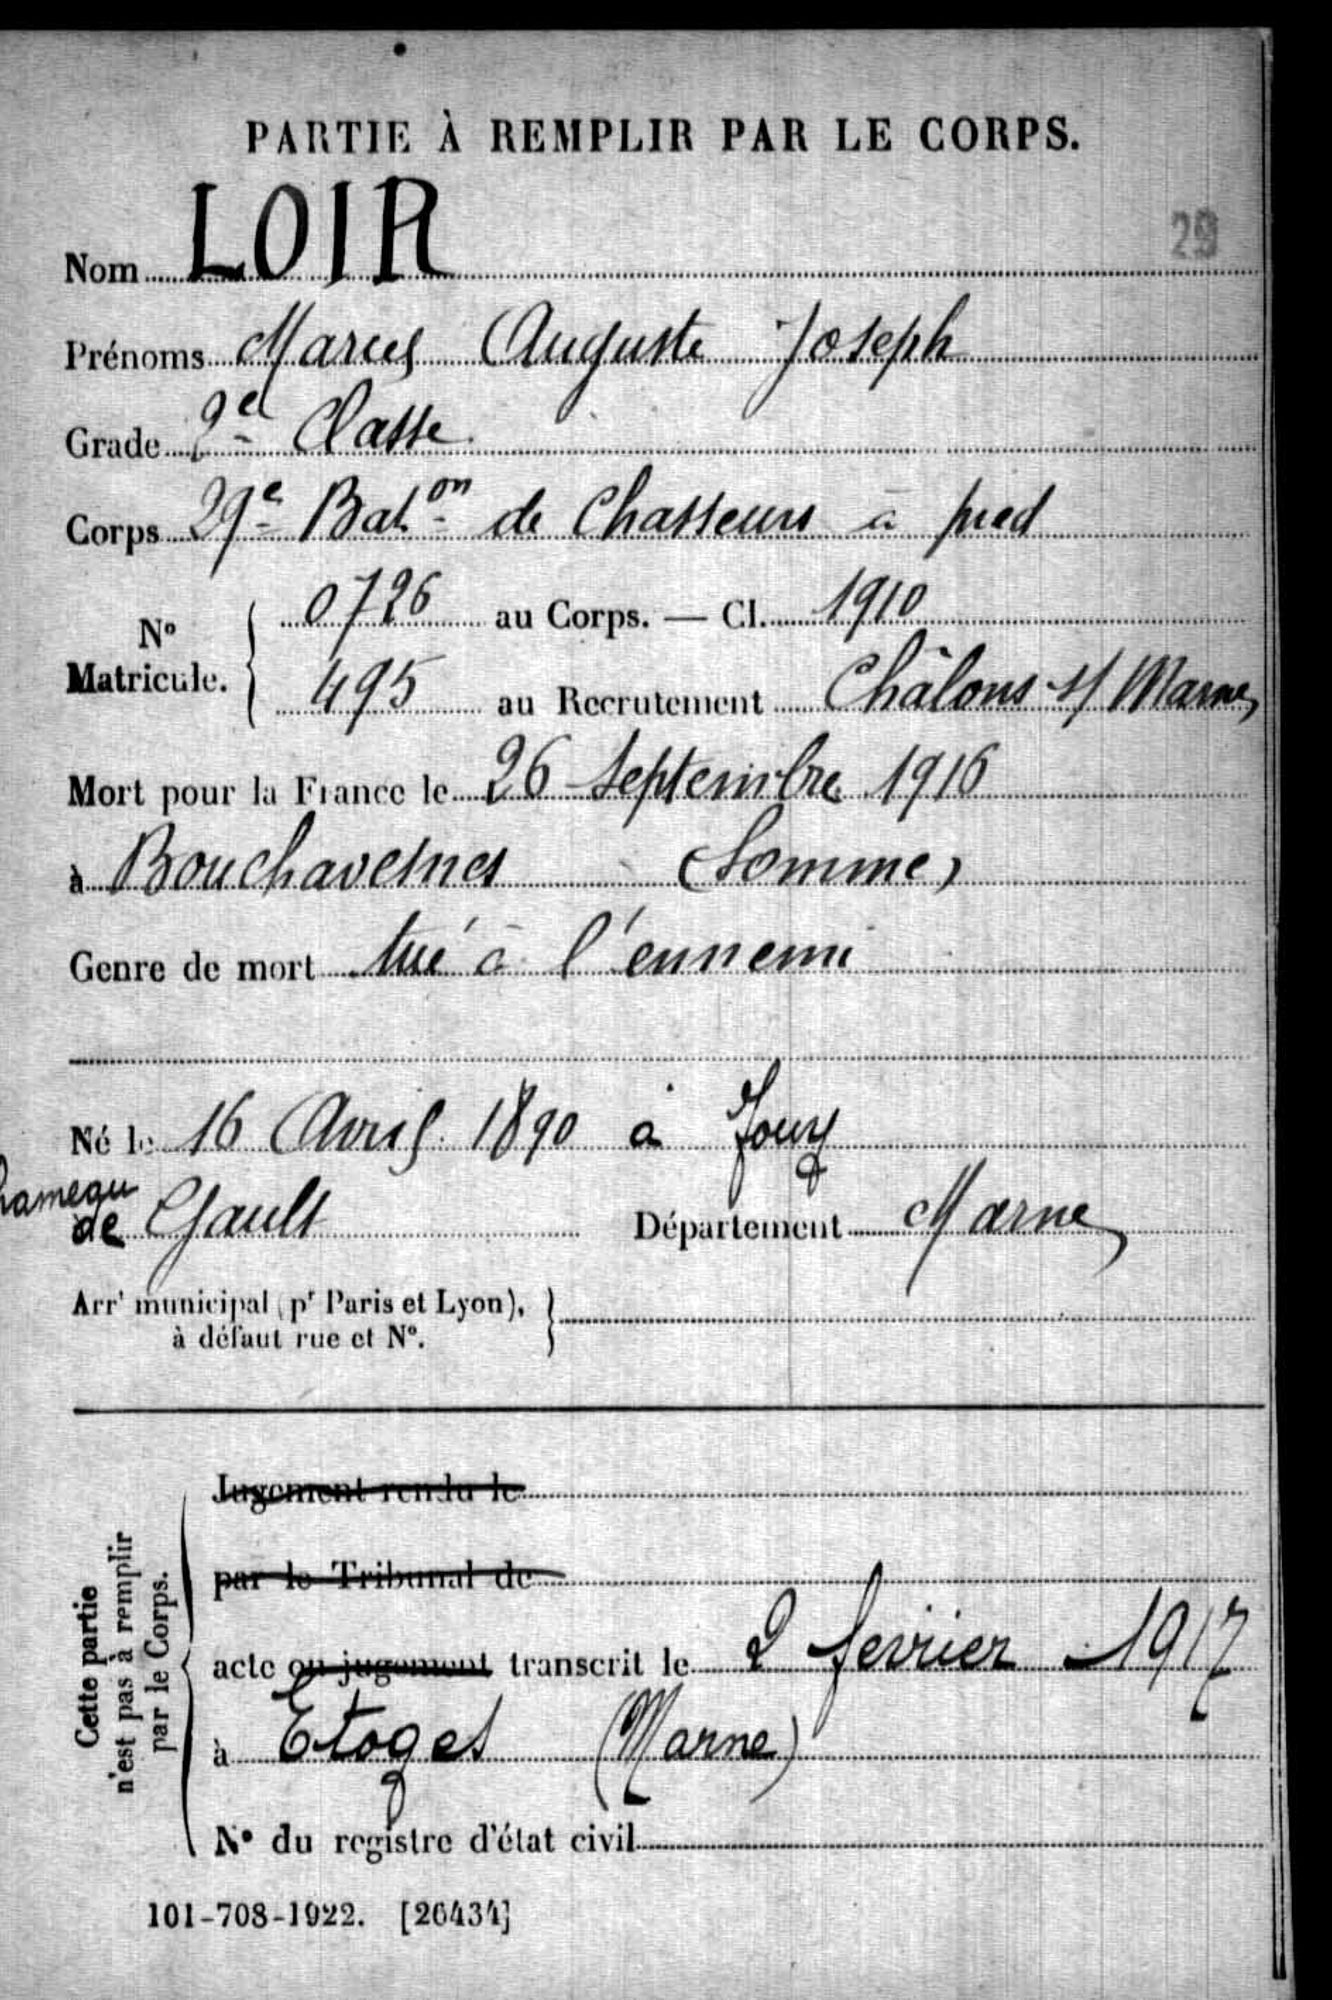 PARTIE À REMPLIR PAR LE CORPS.
29
Nom LOIR
Prénoms Marcel Auguste Joseph
Grade 2e Classe
Corps 29e Baton de Chasseurs à pied
No Matricule. { 0726 au Corps. — Cl. 1910
495 au Recrutement Châlons s/ Marne
Mort pour la France le 26 Septembre 1916
à Bouchavesnes (Somme)
Genre de mort tué à l'ennemi
Né le 16 Avril 1890 à Jouy
hameau de Gault Département Marne
Arrt municipal (pr Paris et Lyon), à défaut rue et No. }
Cette partie n'est pas à remplir par le Corps. {
Jugement rendu le
par le Tribunal de
acte ou jugement transcrit le 2 fevrier 1917
à Etoges (Marne)
No du registre d'état civil
101-708-1922. [26434]